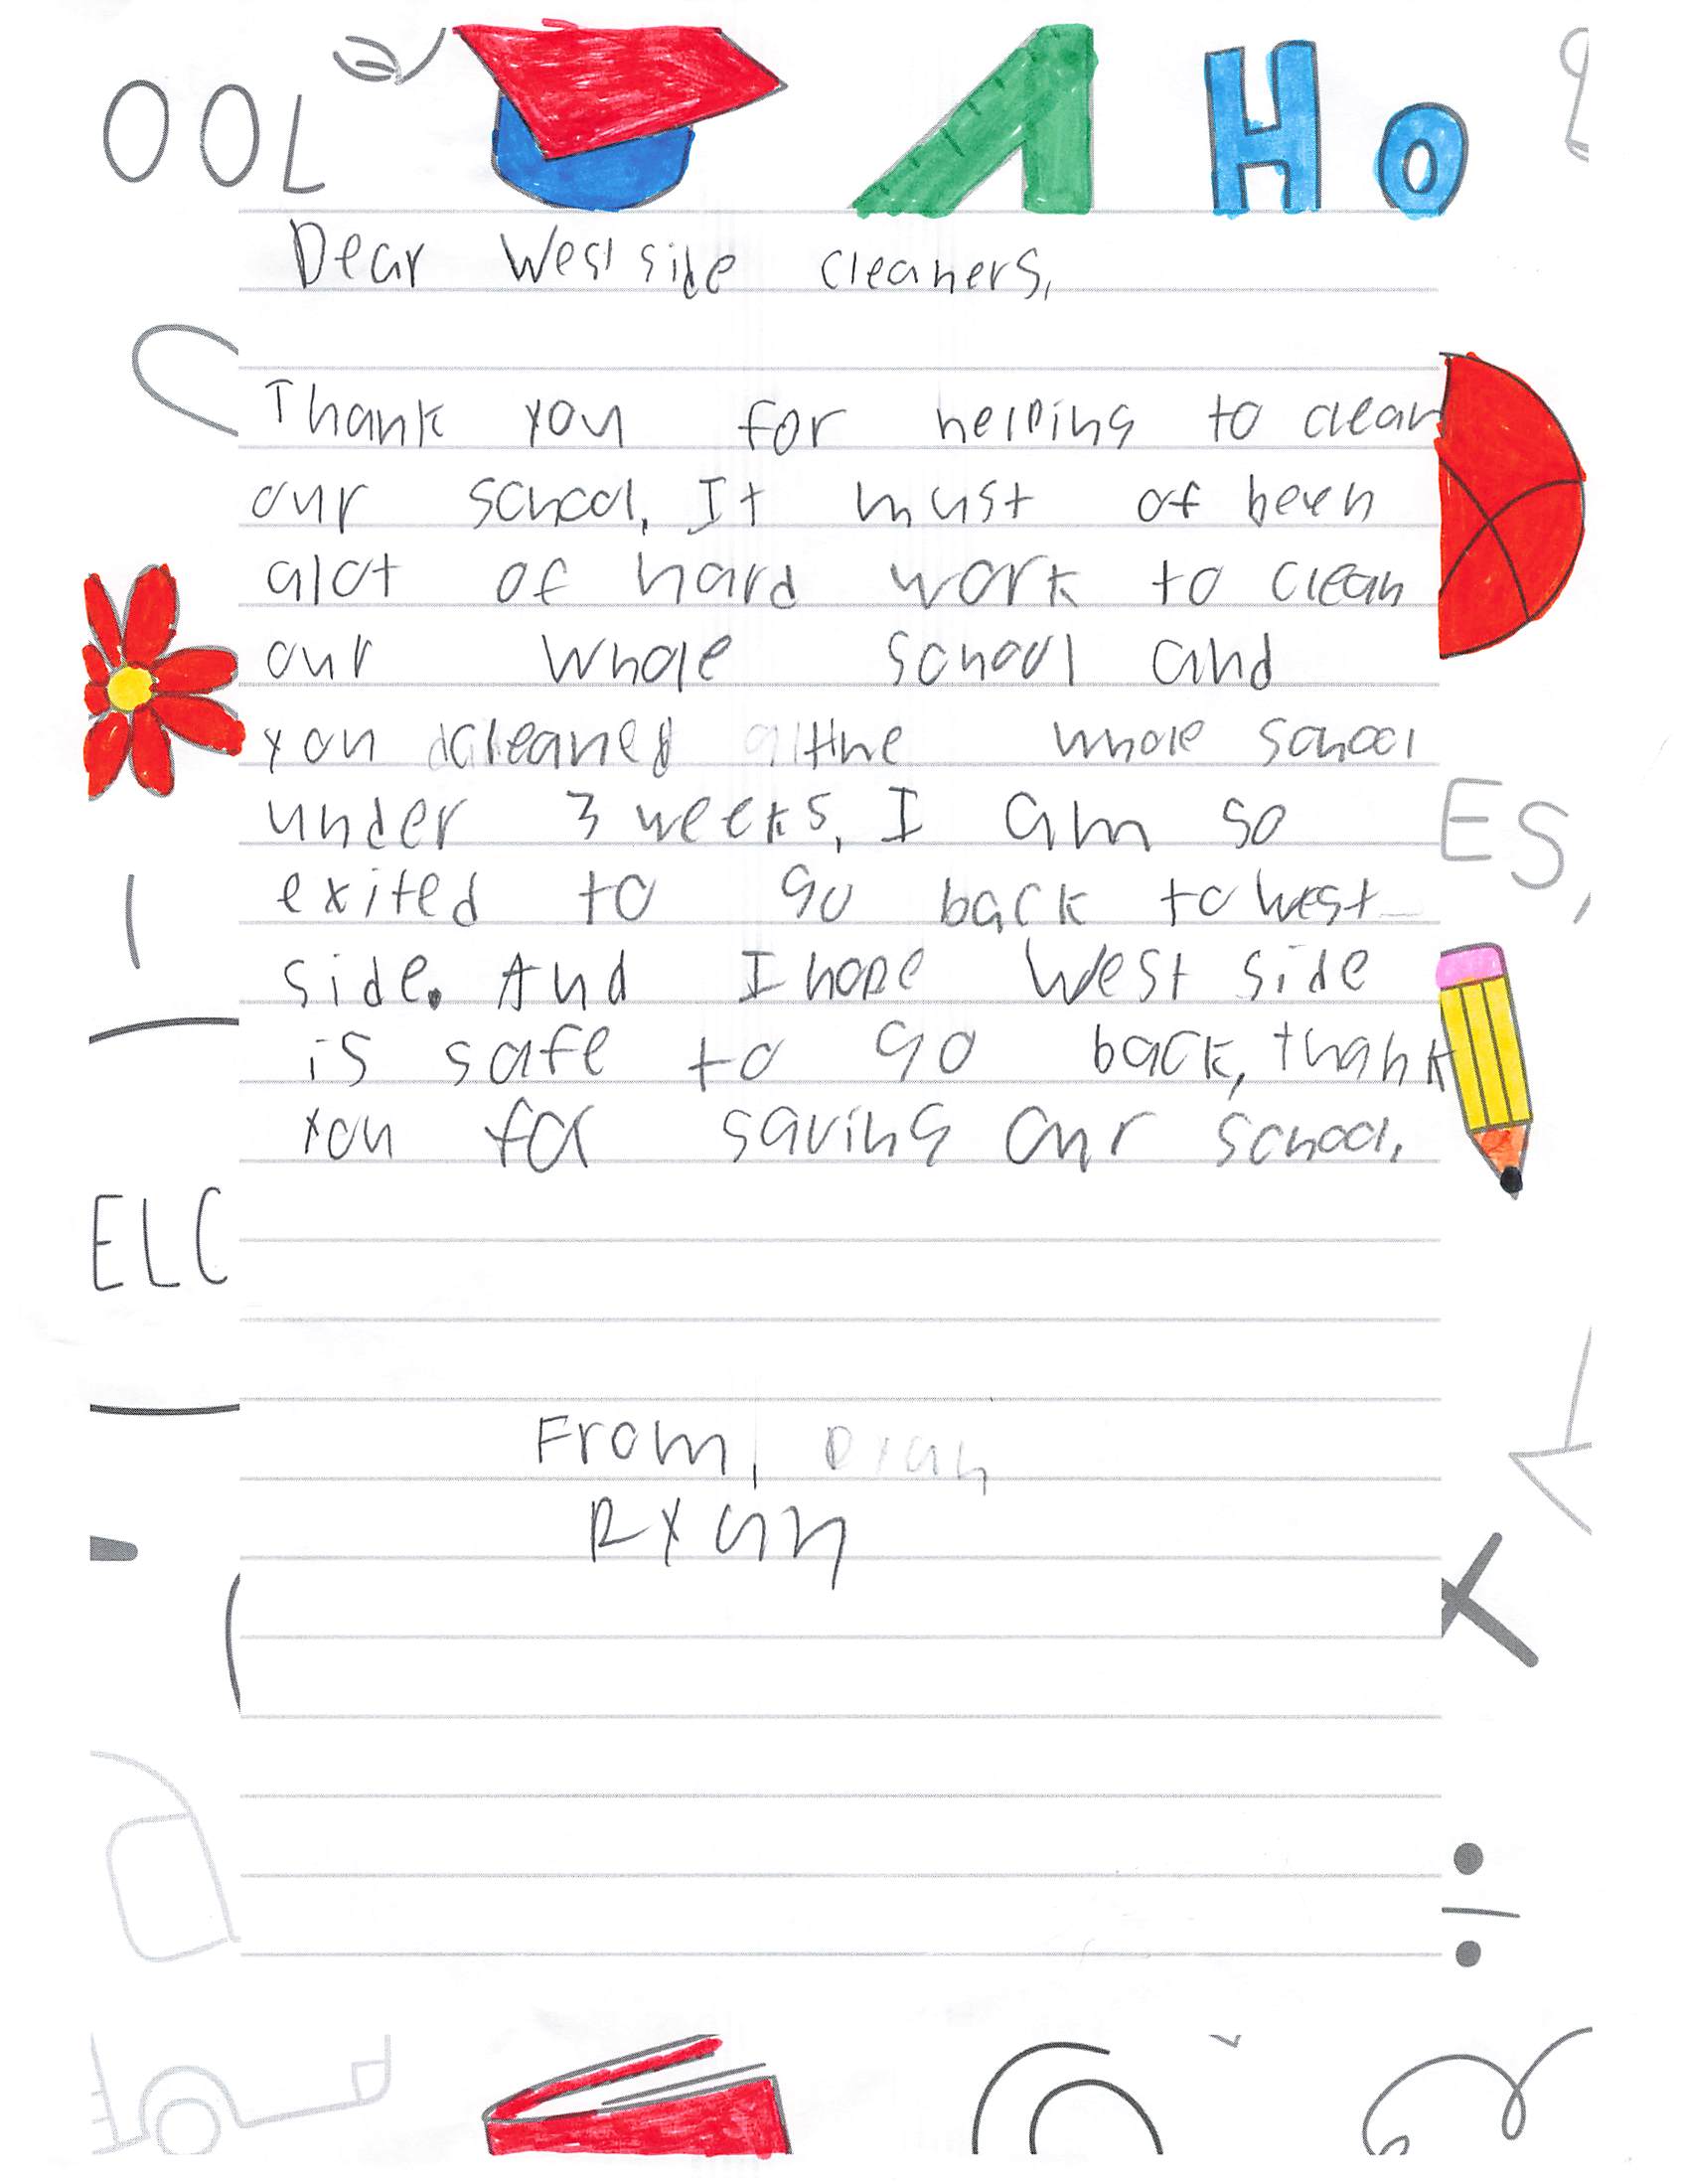 OOL
Ho
Dear West side cleaners,
Thank you for helping to clean
our school. It must of been
alot of hard work to clean
our whole school and
you cleaned the whole school
under 3 weeks, I am so
exited to go back to west
side. And I hope West side
is safe to go back, thank
you for saving our school.
ES,
ELC
From,
Ryan